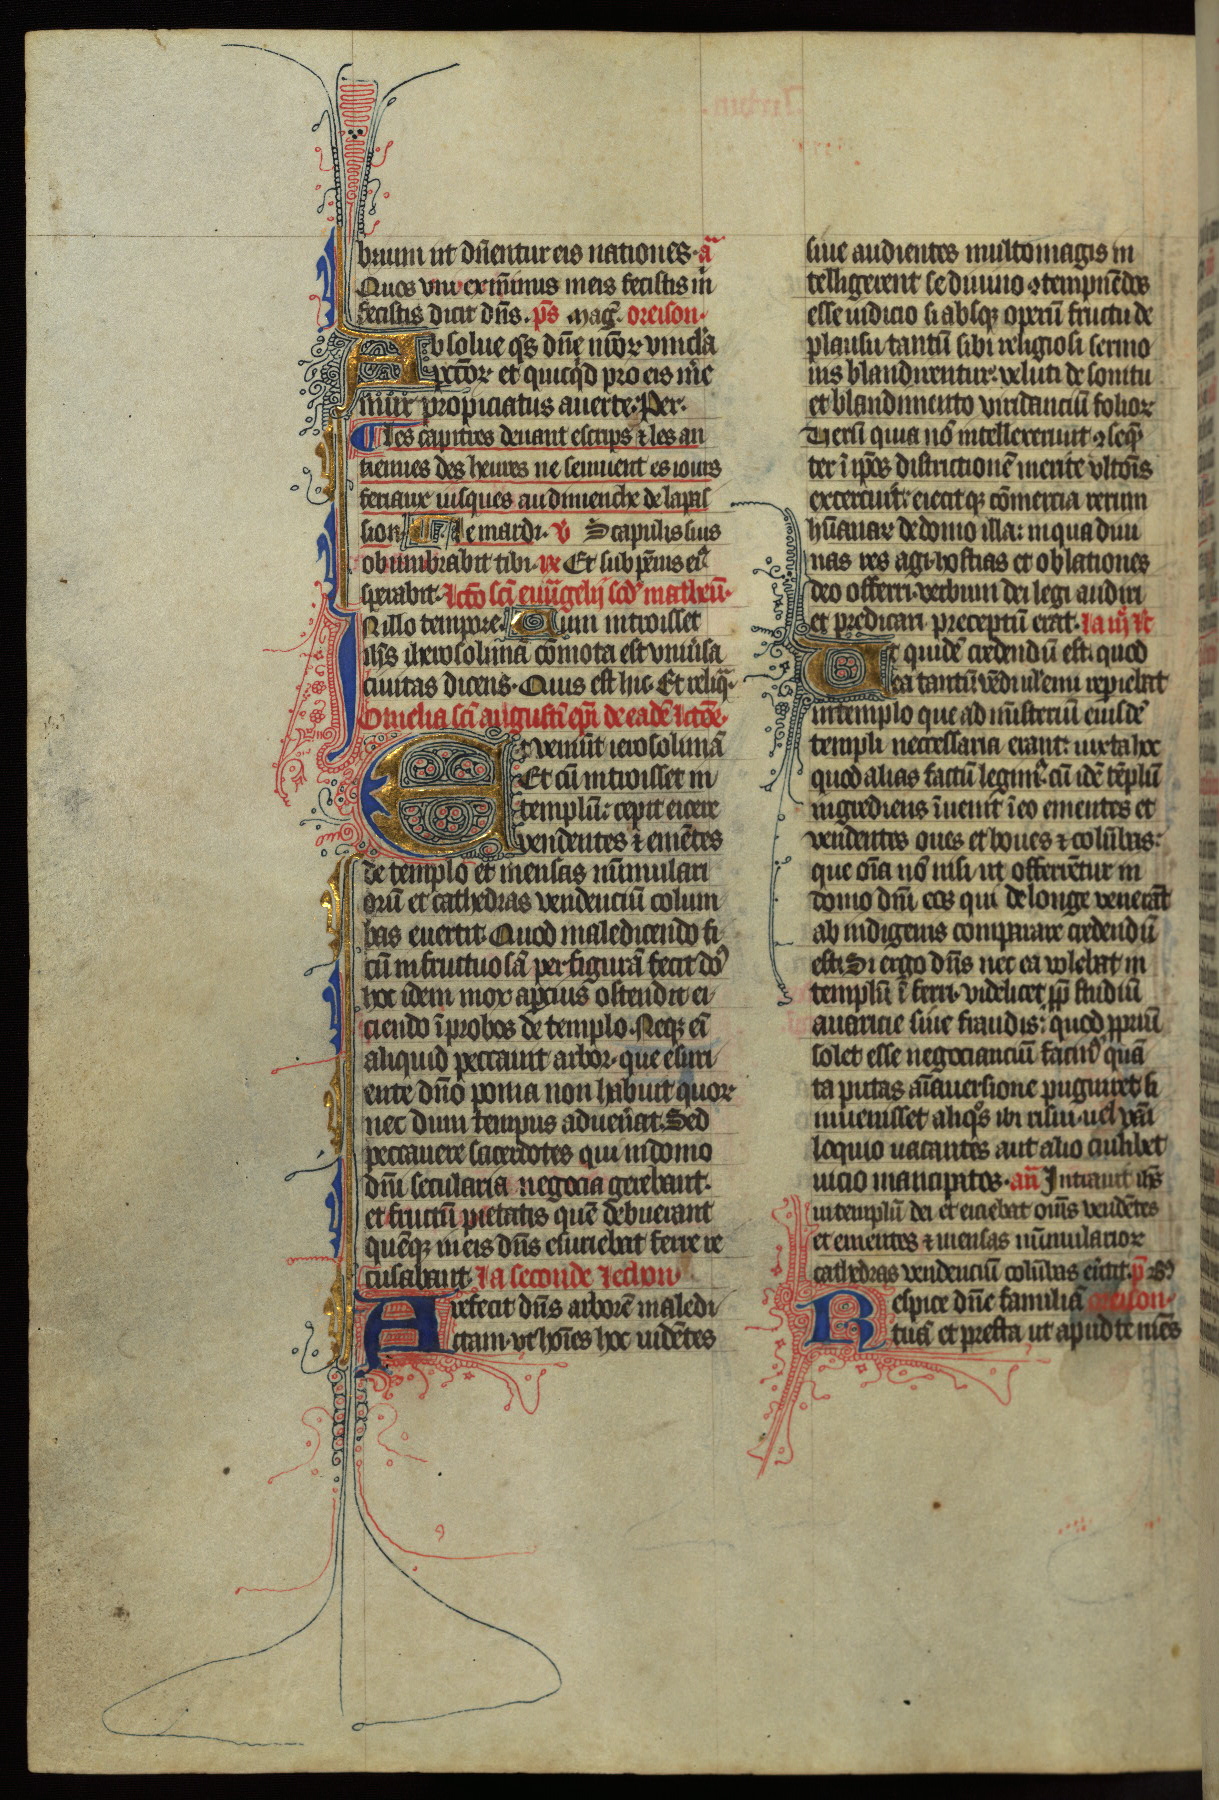 brium ut dñentur eis nationes. añ
Quos vni ex mĩimis meis fecistis m̃
fecistis dicit dñs. ps̃ mag̃. oreison.
Absolue qs̃ dñe nr̃or vincla
pctõr et quicq̃d pro eis me
mur propiciatus auerte. Per.
Les capitres deuant escrips ⁊ les an
tiennes des heures ne seruuent es iours
feriaux iusques au dimenche de la pas
sion. Le mardi. v̷ Scapulis suis
obumbrabit tibi. r̷ Et sub pẽnis ei9
sperabit. Lctõ sc̃i euuãgelij scd̃ matheũ.
In illo tempore. Cum introisset
ih̃s iherosolimã cõmota est vniũsa
ciuitas dicens. Quis est hic. Et reliq̃.
Omelia sc̃i augusti ep̃i de eadẽ lctõe.
Et veniũt ierosolimã
Et cũ introisset in
templũ: cepit eicere
vendentes ⁊ emẽtes
de templo et mensas nũmulari
orũ et cathedras vendenciũ colum
bas euertit. Quod maledicendo fi
cũ infructuosã per figurã fecit dõ
hoc idem mox apcius ostendit ei
ciendo ĩprobos de templo. Neq; eĩ
aliquid peccauit arbor. que esuri
ente dñõ poma non habuit quor
nec dum tempus aduen̾at. Sed
peccauere sacerdotes qui in domo
dñi secularia negocia gerebant.
et fructũ pietatis quẽ debuerant
quẽq; in eis dñs esuriebat ferre re
cusabant. La seconde lecion
Arefecit dñs arborẽ maledi
ctam. vt hoĩes hoc uidẽtes
siue audientes multomagis in
telligerent se diuino ⁊tempnẽdos
esse iudicio si absq; operũ fructu de
plausu tantũ sibi religiosi sermo
nis blandirentur: veluti de sonitu
et blandimento viridanciũ folior
Uersi quia nõ intellexerunt ⁊seq̃
ter ĩ ip̃os districtionẽ merite vltõis
exercuit: eiecitq; cõmercia rerum
hũanar de domo illa: in qua diui
nas res agi. hostias et oblationes
deo offerri. verbum dei legi audiri
et predicari preceptũ erat. La iij̃ lc̃
Et quidẽ credendũ est: quod
ea tantũ vẽdi ul̃ emi repiebat
in templo que ad mĩsterĩu eiusdẽ
templi necessaria erant: iuxta hoc
quod alias factũ legim9. cũ idẽ tẽplũ
ingrediens ĩuenit ĩ eo ementes et
vendentes oues et boues ⁊ colũbas:
que oĩa nõ nisi ut offerẽtur in
domo dñi eos qui de longe venerãt
ab indigenis comparare credendũ
est. Si ergo dñs nec ea volebat in
templũ ĩferri. videlicet pp̃ studiũ
auaricie siue fraudis: quod ꝓpriũ
solet esse negocianciũ facin9 quã
ta putas aĩauersione puniret si
inuenisset aliq̃s ibi risui. uel vañi
loquio uacantes aut alio cuilibet
uicio mancipatos. añ Intrauit ih̃s
in templũ dei et eiciebat om̃s vendẽtes
et ementes ⁊ mensas nũmularior
cathedras vendenciũ colũbas eũtit. p̃
Respice dñe familiã oreison.
tuã et presta ut apud te mẽs